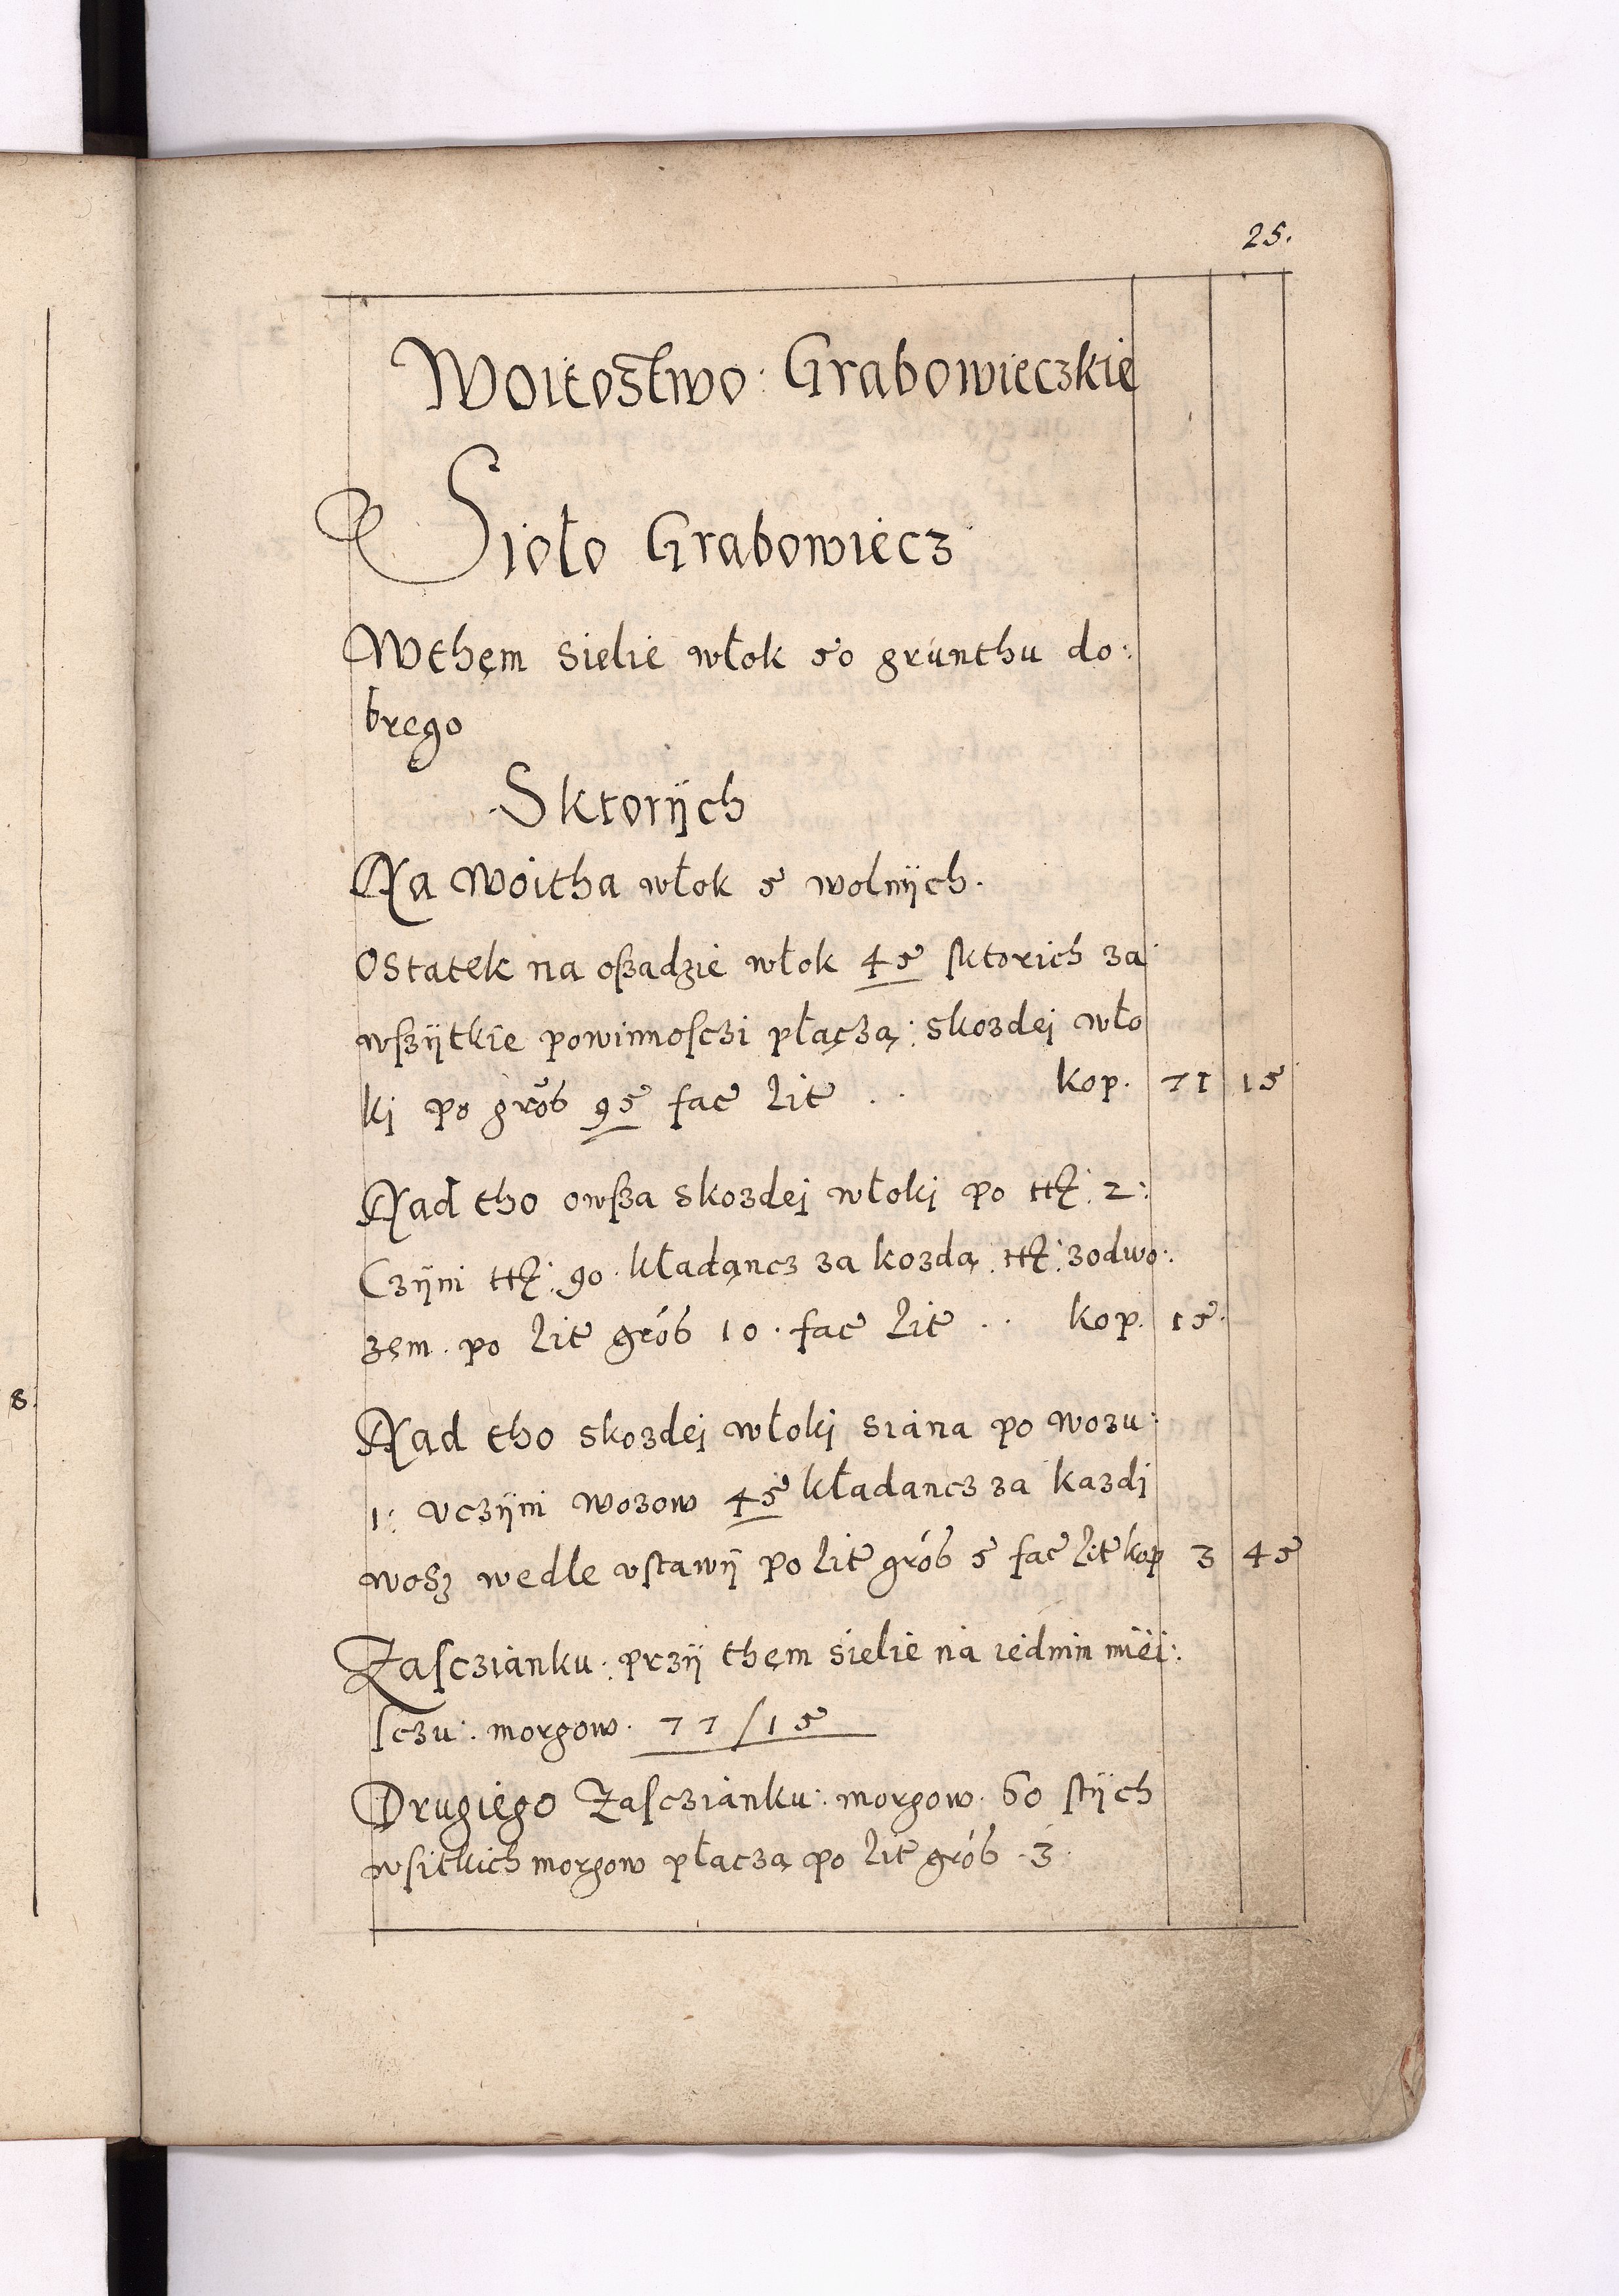 25.
Woitostwo: Grabowieczkie
Sioło Grabowiecz
Wthęm sielie włok 50 grunthu do:
brego
Sktorÿch
Na Woitha włok 5 wolnÿch.
Ostatek na oszadzie włok 45 sktorich za
wszÿtkie powinnosczi płączą: skozdej wło
kj po grosz 95 fac lit .. kop. 71 15
Nad tho owsza skozdej włokj po 2:
Czÿni 90. kładąncz za kozdą zodwo:
zem. po lit grosz 10. fac lit .. kop. 15.
Nad tho skozdej włokj siana po wozu:
1: vczÿni wozow 45 kładancz za kazdi
wosz wedle vstawÿ po lit grosz 5 fac lit kop 3 45
Zasczianku: przÿ thęm sielie na iednin miei:
sczu: morgow. 77/15
Drugiego Zasczianku: morgow. 60 stÿch
wsitkich morgow płaczą po lit grosz 3
8: